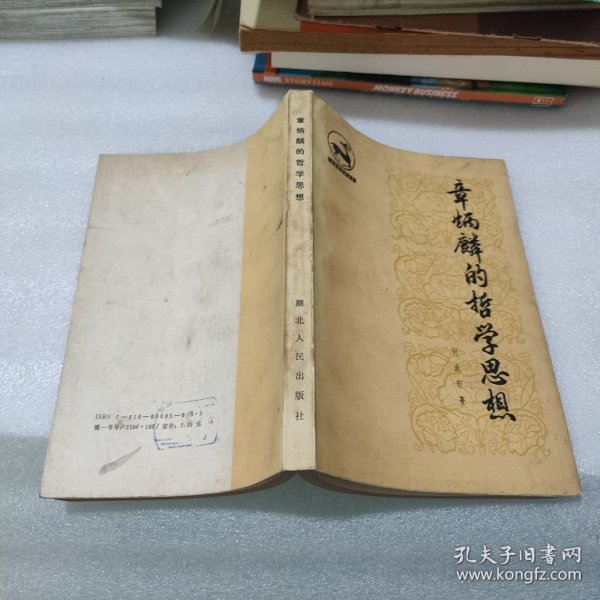 STORYTIME
MONKEY BUSINESS
章炳麟的哲学思想
湖北人民出版社
章炳麟的哲学思想
著
ISBN 7—216—00005—6/B·3
统一书号:2106·102/定价:2.10元
孔夫子旧书网
www.kongfz.com